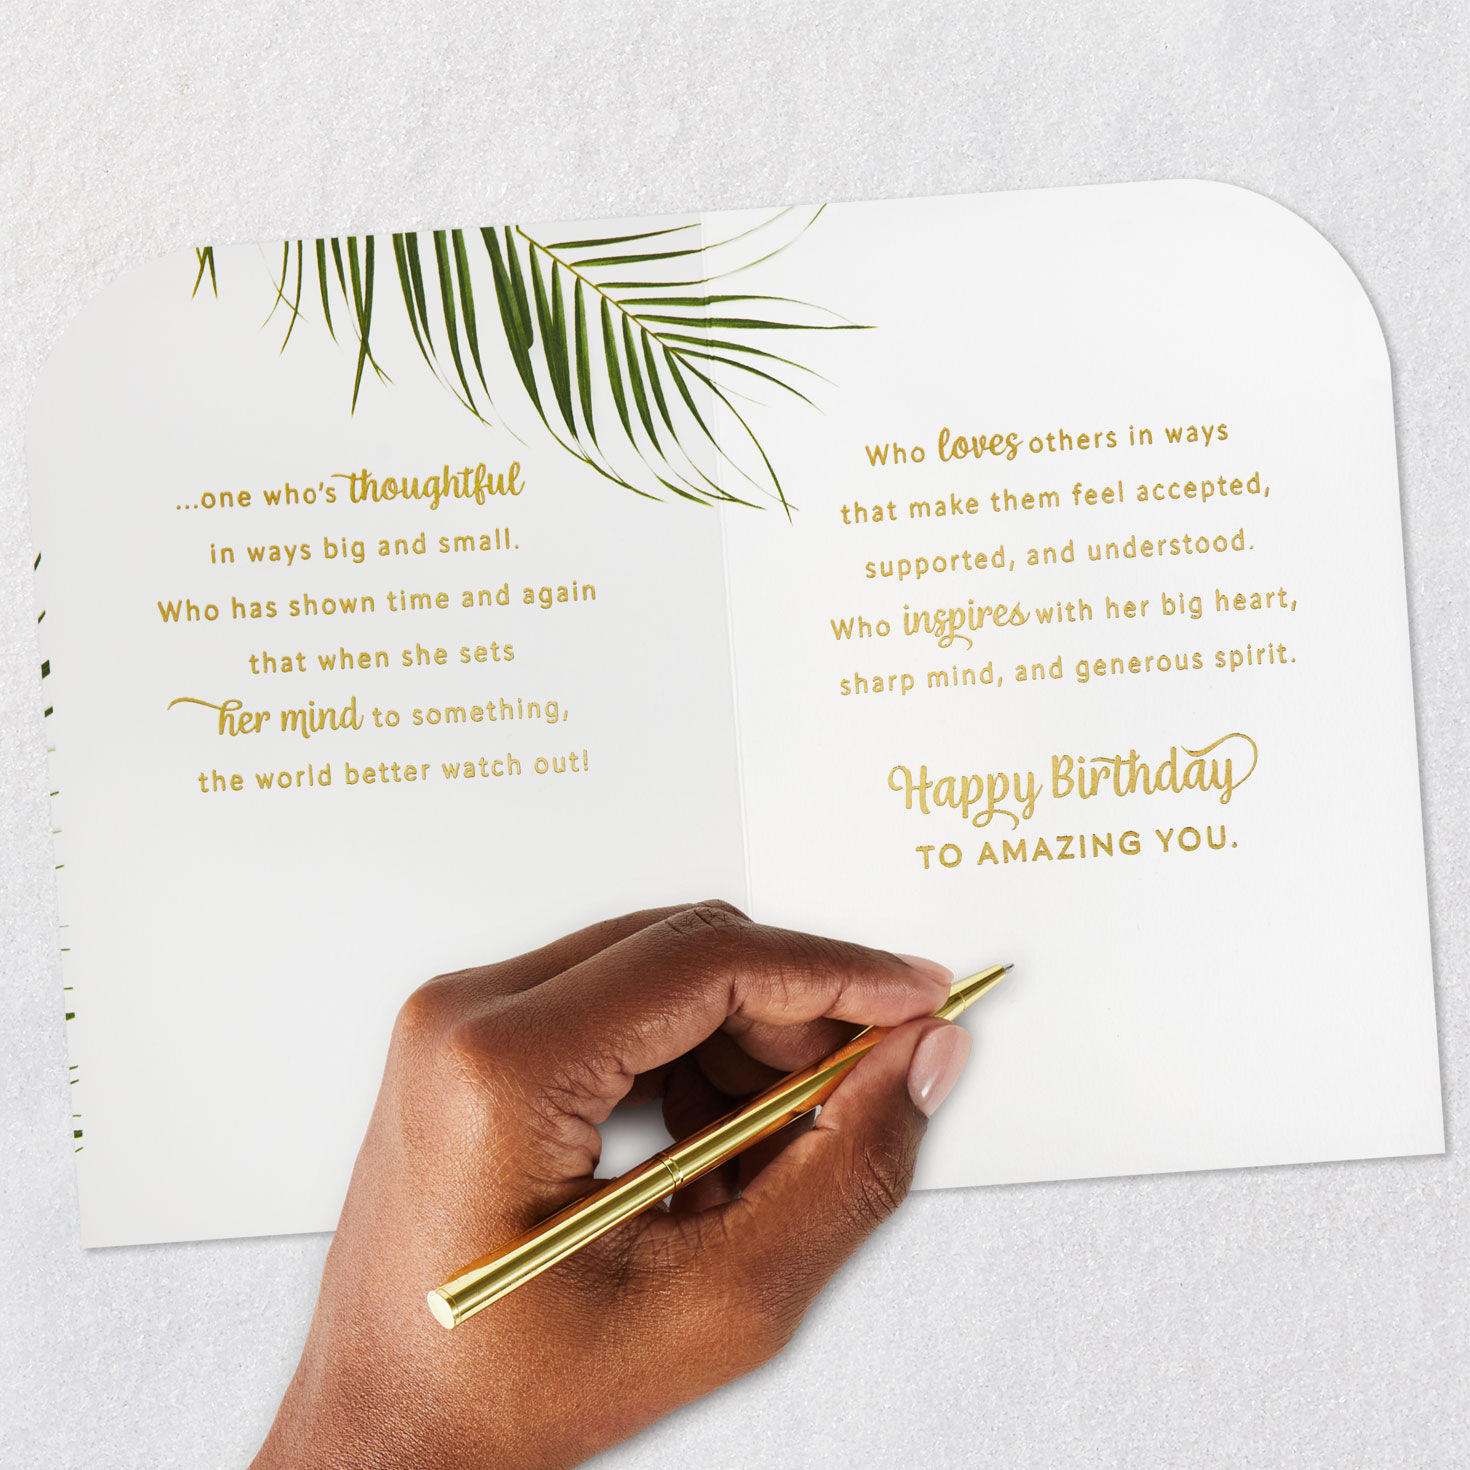 ...one who's thoughtful
in ways big and small.
Who has shown time and again
that when she sets
her mind to something,
the world better watch out!
Who loves others in ways
that make them feel accepted,
supported, and understood.
Who inspires with her big heart,
sharp mind, and generous spirit.
Happy Birthday
TO AMAZING YOU.